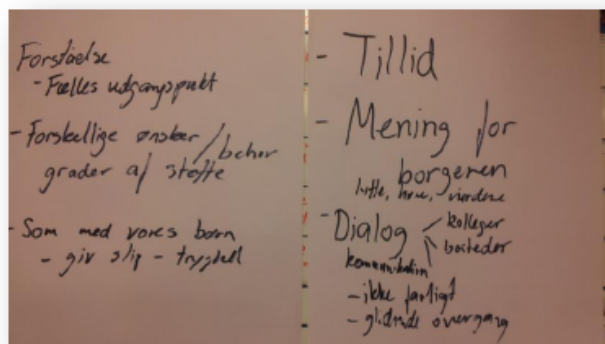 Forståelse
- Fælles udgangspunkt
- Forskellige ønsker / behov
grader af støtte
- Som med vores børn
- giv slip - tryghed
- Tillid
- Mening for
borgeren
lytte, høre, vurdere
- Dialog - kolleger
bosteder
kommunikation
- ikke farligt
- glidende overgang